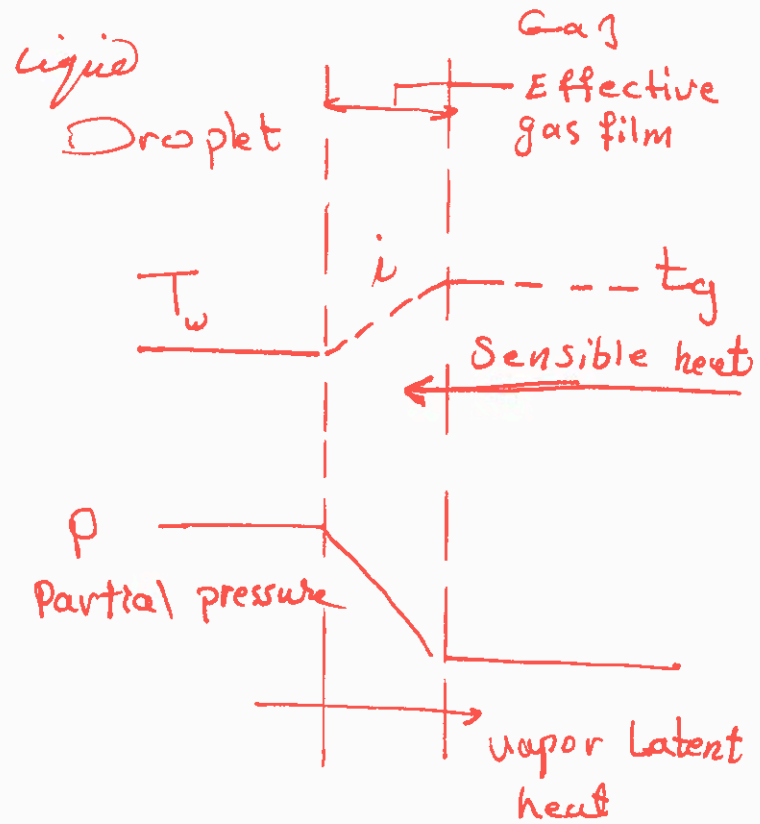 Liquid
Droplet
Gas
Effective
gas film
Tw
i
tg
Sensible heat
P
Partial pressure
vapor Latent
heat